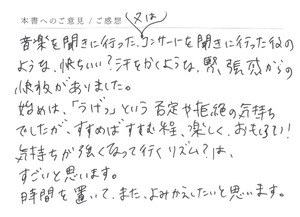 本書へのご意見 / ご感想
又は
音楽を聞きに行った、コンサートを聞きに行った後の
ような、快ちいい？汗をかくような、緊張感からの
快税がありました。
始めは、「うげっ」という否定や拒絶の気持ち
でしたが、すすめばすすむ程、楽しく、おもしろい！
気持ちが強くなって行くリズム？は、
すごいと思います。
時間を置いて、また、よみかえしたいと思います。